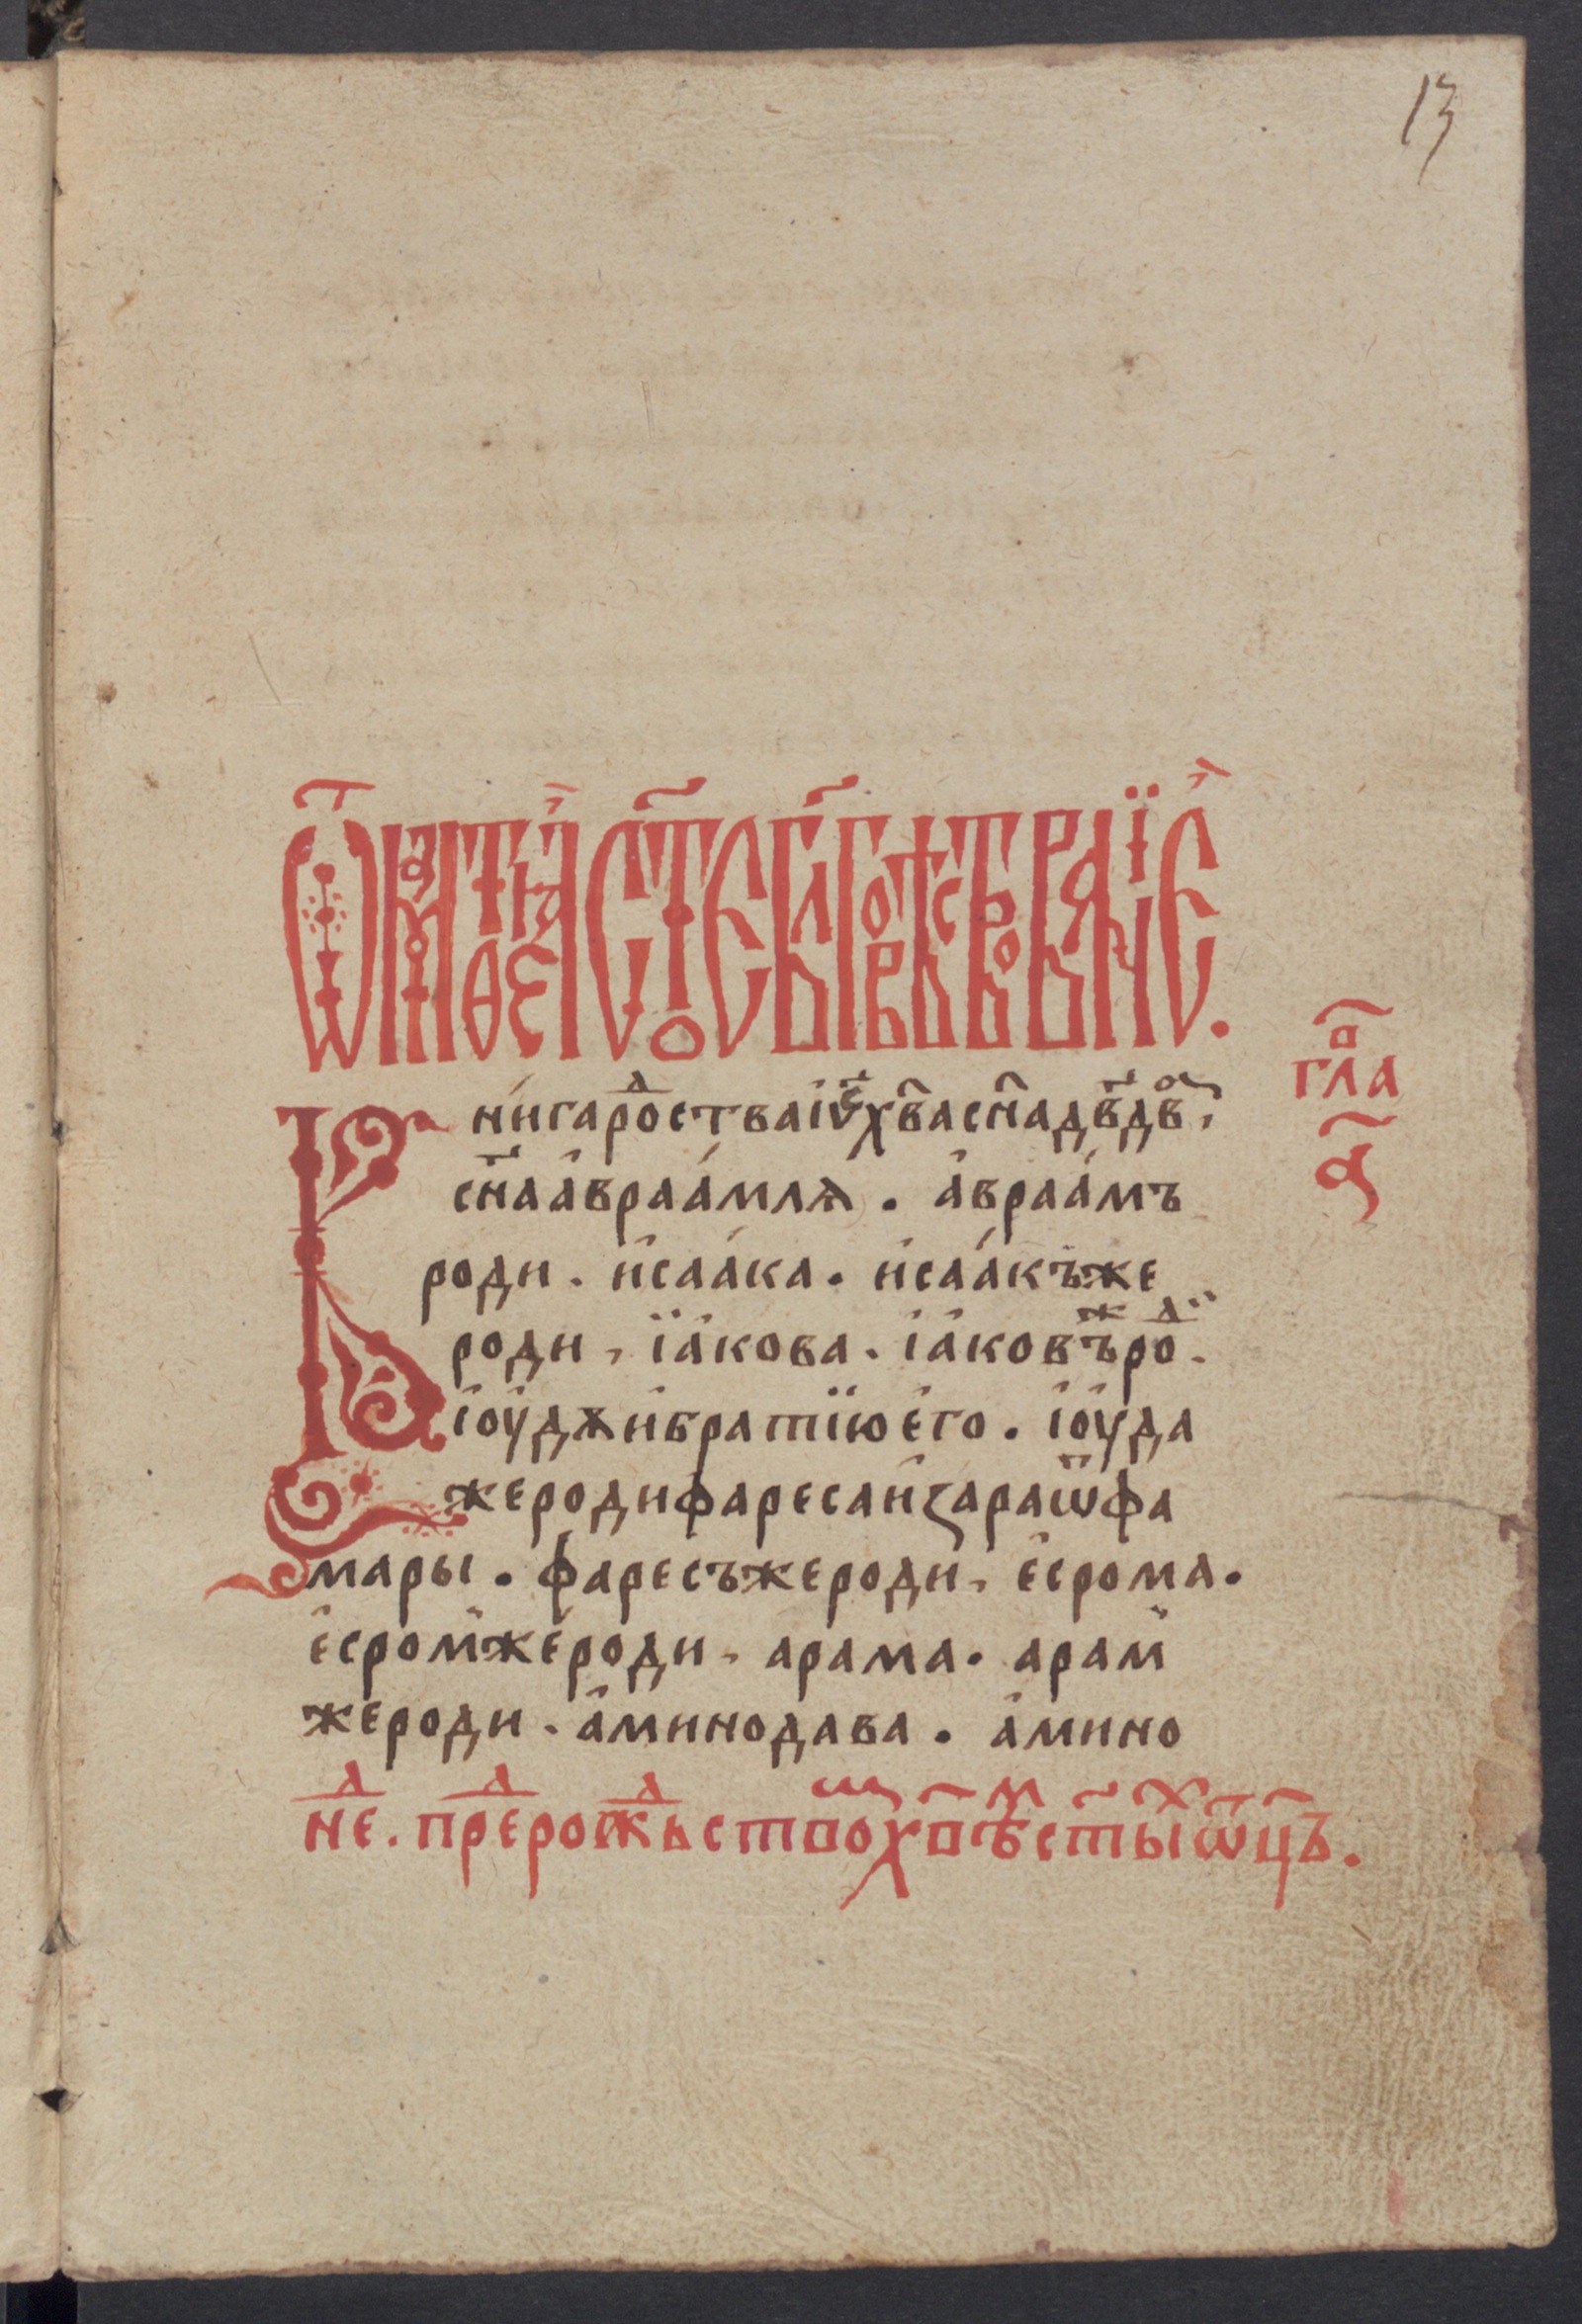 13
Ѿ маѳеа стое бл҃говѣствованїе.
гл҃а
а҃
Кни́га родства і҆у҃ х҃ва сн҃а дв҃два,
сн҃а а҆враа́млѧ . а҆враа́мъ
роди . и҆саа́ка . и҆саа́къже
роди , ї҆а́кова . і҆а́ковъжроди .
і҆оу҆дѫ и҆братїю е҆го . і҆оу҆да
жероди фареса и҆ зара ѿ фа
мары . фаресъжероди , е҆срома .
е҆сромже роди , арама . арам
жероди . а҆минодава . а҆мино
не҇д . пре҇д рожⷣьство х҃во ст҃ы ѿц҃ъ .